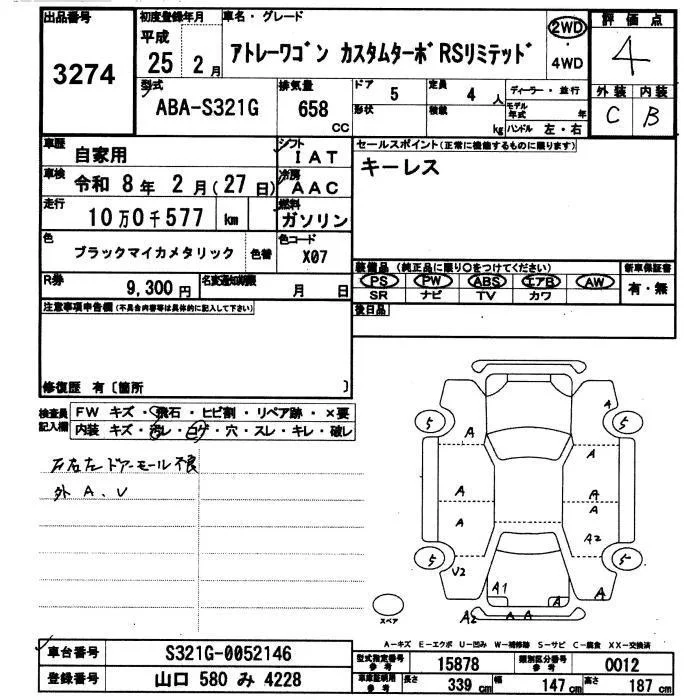 出品番号
3274
初度登録年月
平成
25年 2月
車名・グレード
アトレーワゴン カスタムターボRSリミテッド
2WD
・
4WD
評価点
4
外装 内装
C B
型式
ABA-S321G
排気量
658
CC
ドア
5
定員
4人
形状
積載
kg
ディーラー・並行
モデル年式 年
ハンドル 左・右
車歴
自家用
シフト
IAT
車検
令和 8年 2月(27日)
冷房
AAC
走行
10万0千577 km
燃料
ガソリン
色
ブラックマイカメタリック
色替
色コード
X07
R券
9,300円
名変通知期限
月 日
セールスポイント(正常に機能するものに限ります)
キーレス
装備品(純正品に限り○をつけてください)
PS PW ABS エアB AW
SR ナビ TV カワ
新車保証書
有・無
後日品
注意事項申告欄(不具合内容等は具体的に記入して下さい)
修復歴 有〔箇所 〕
検査員記入欄
FW キズ・飛石・ヒビ割・リペア跡・×要
内装 キズ・汚レ・コゲ・穴・スレ・キレ・破レ
ドアモール不良
外 A、V
A
5 5
A A
A A
A A
A2
5 5
V2
A1 A A
A2 A A
スペア
A-キズ E-エクボ U-凹み W-補修跡 S-サビ C-腐食 XX-交換済
車台番号
S321G-0052146
登録番号
山口 580 み 4228
型式指定番号参考
15878
類別区分番号参考
0012
車庫証明用参考
長さ 339 cm 幅 147 cm 高さ 187 cm